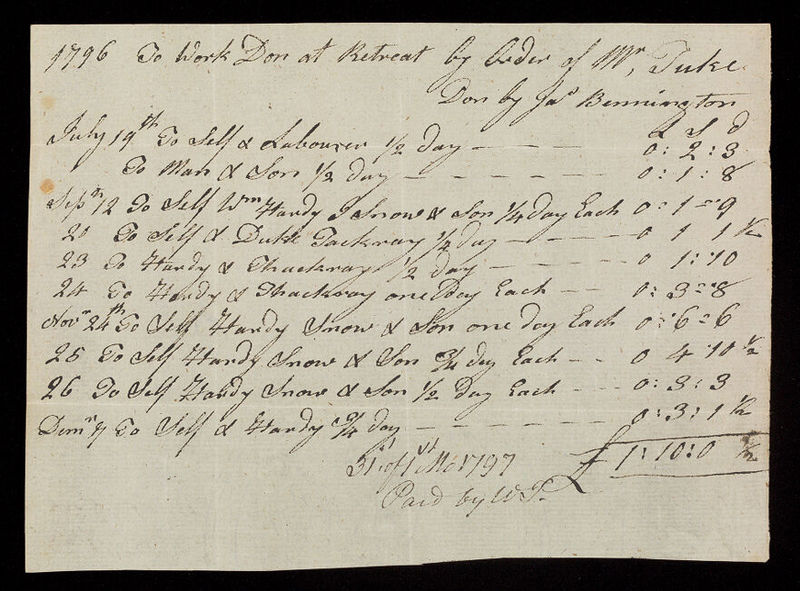 1796 To Work Don at Retreat by Order of Mr, Tuke
Don by Jas Bennington
£ S d
July 19th To Self & Labourer 1/2 day — — — 0: 2: 3
To Man & Son 1/2 day — — — — — 0: 1: 8
12 To Self Wm Hardy J Snow & Son 1/4 Day Each 0: 1 = 9
20 To Self & Duke Tackray 1/4 day — — — 0 1 1 1/2
23 To Hardy & Thackray 1/2 day — — — 0 1: 10
24 To Hardy & Thackray one Day Each — — 0: 3 = 8
Novr 24th To Self Hardy Snow & Son one day Each 0 = 6 = 6
25 To Self Hardy Snow & Son 3/4 day Each — — 0 4: 10 1/2
26 To Self Hardy Snow & Son 1/2 Day Each — — 0: 3: 3
7 To Self & Hardy 3/4 day — — — — — 0: 3: 1 1/2
31st of 1st Mo 1797 £ 1: 10: 0 1/2
Paid by WT.